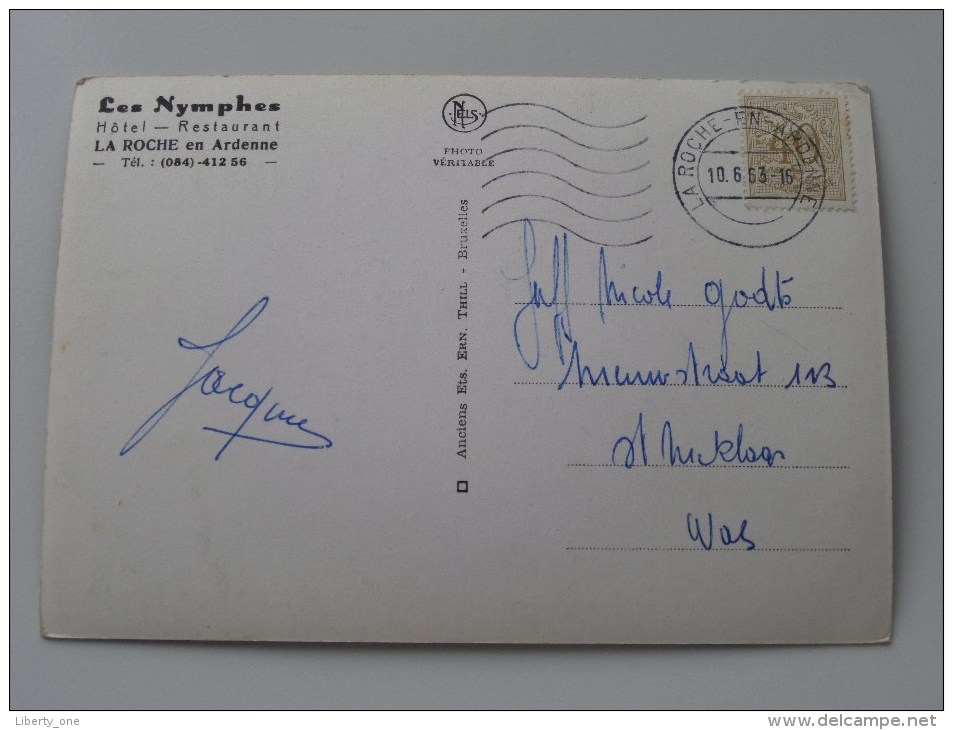 Les Nymphes
Hôtel — Restaurant
LA ROCHE en Ardenne
— Tél. : (084) - 412 56 —
NELS
PHOTO
VÉRITABLE
LA ROCHE-EN-ARDENNE
10.6.63-16
Anciens Ets. ERN. THILL - Bruxelles
Juff Nicole Godts
Nieuwstraat 113
St Niklaas
Was
Jacques
Liberty_one
www.delcampe.net